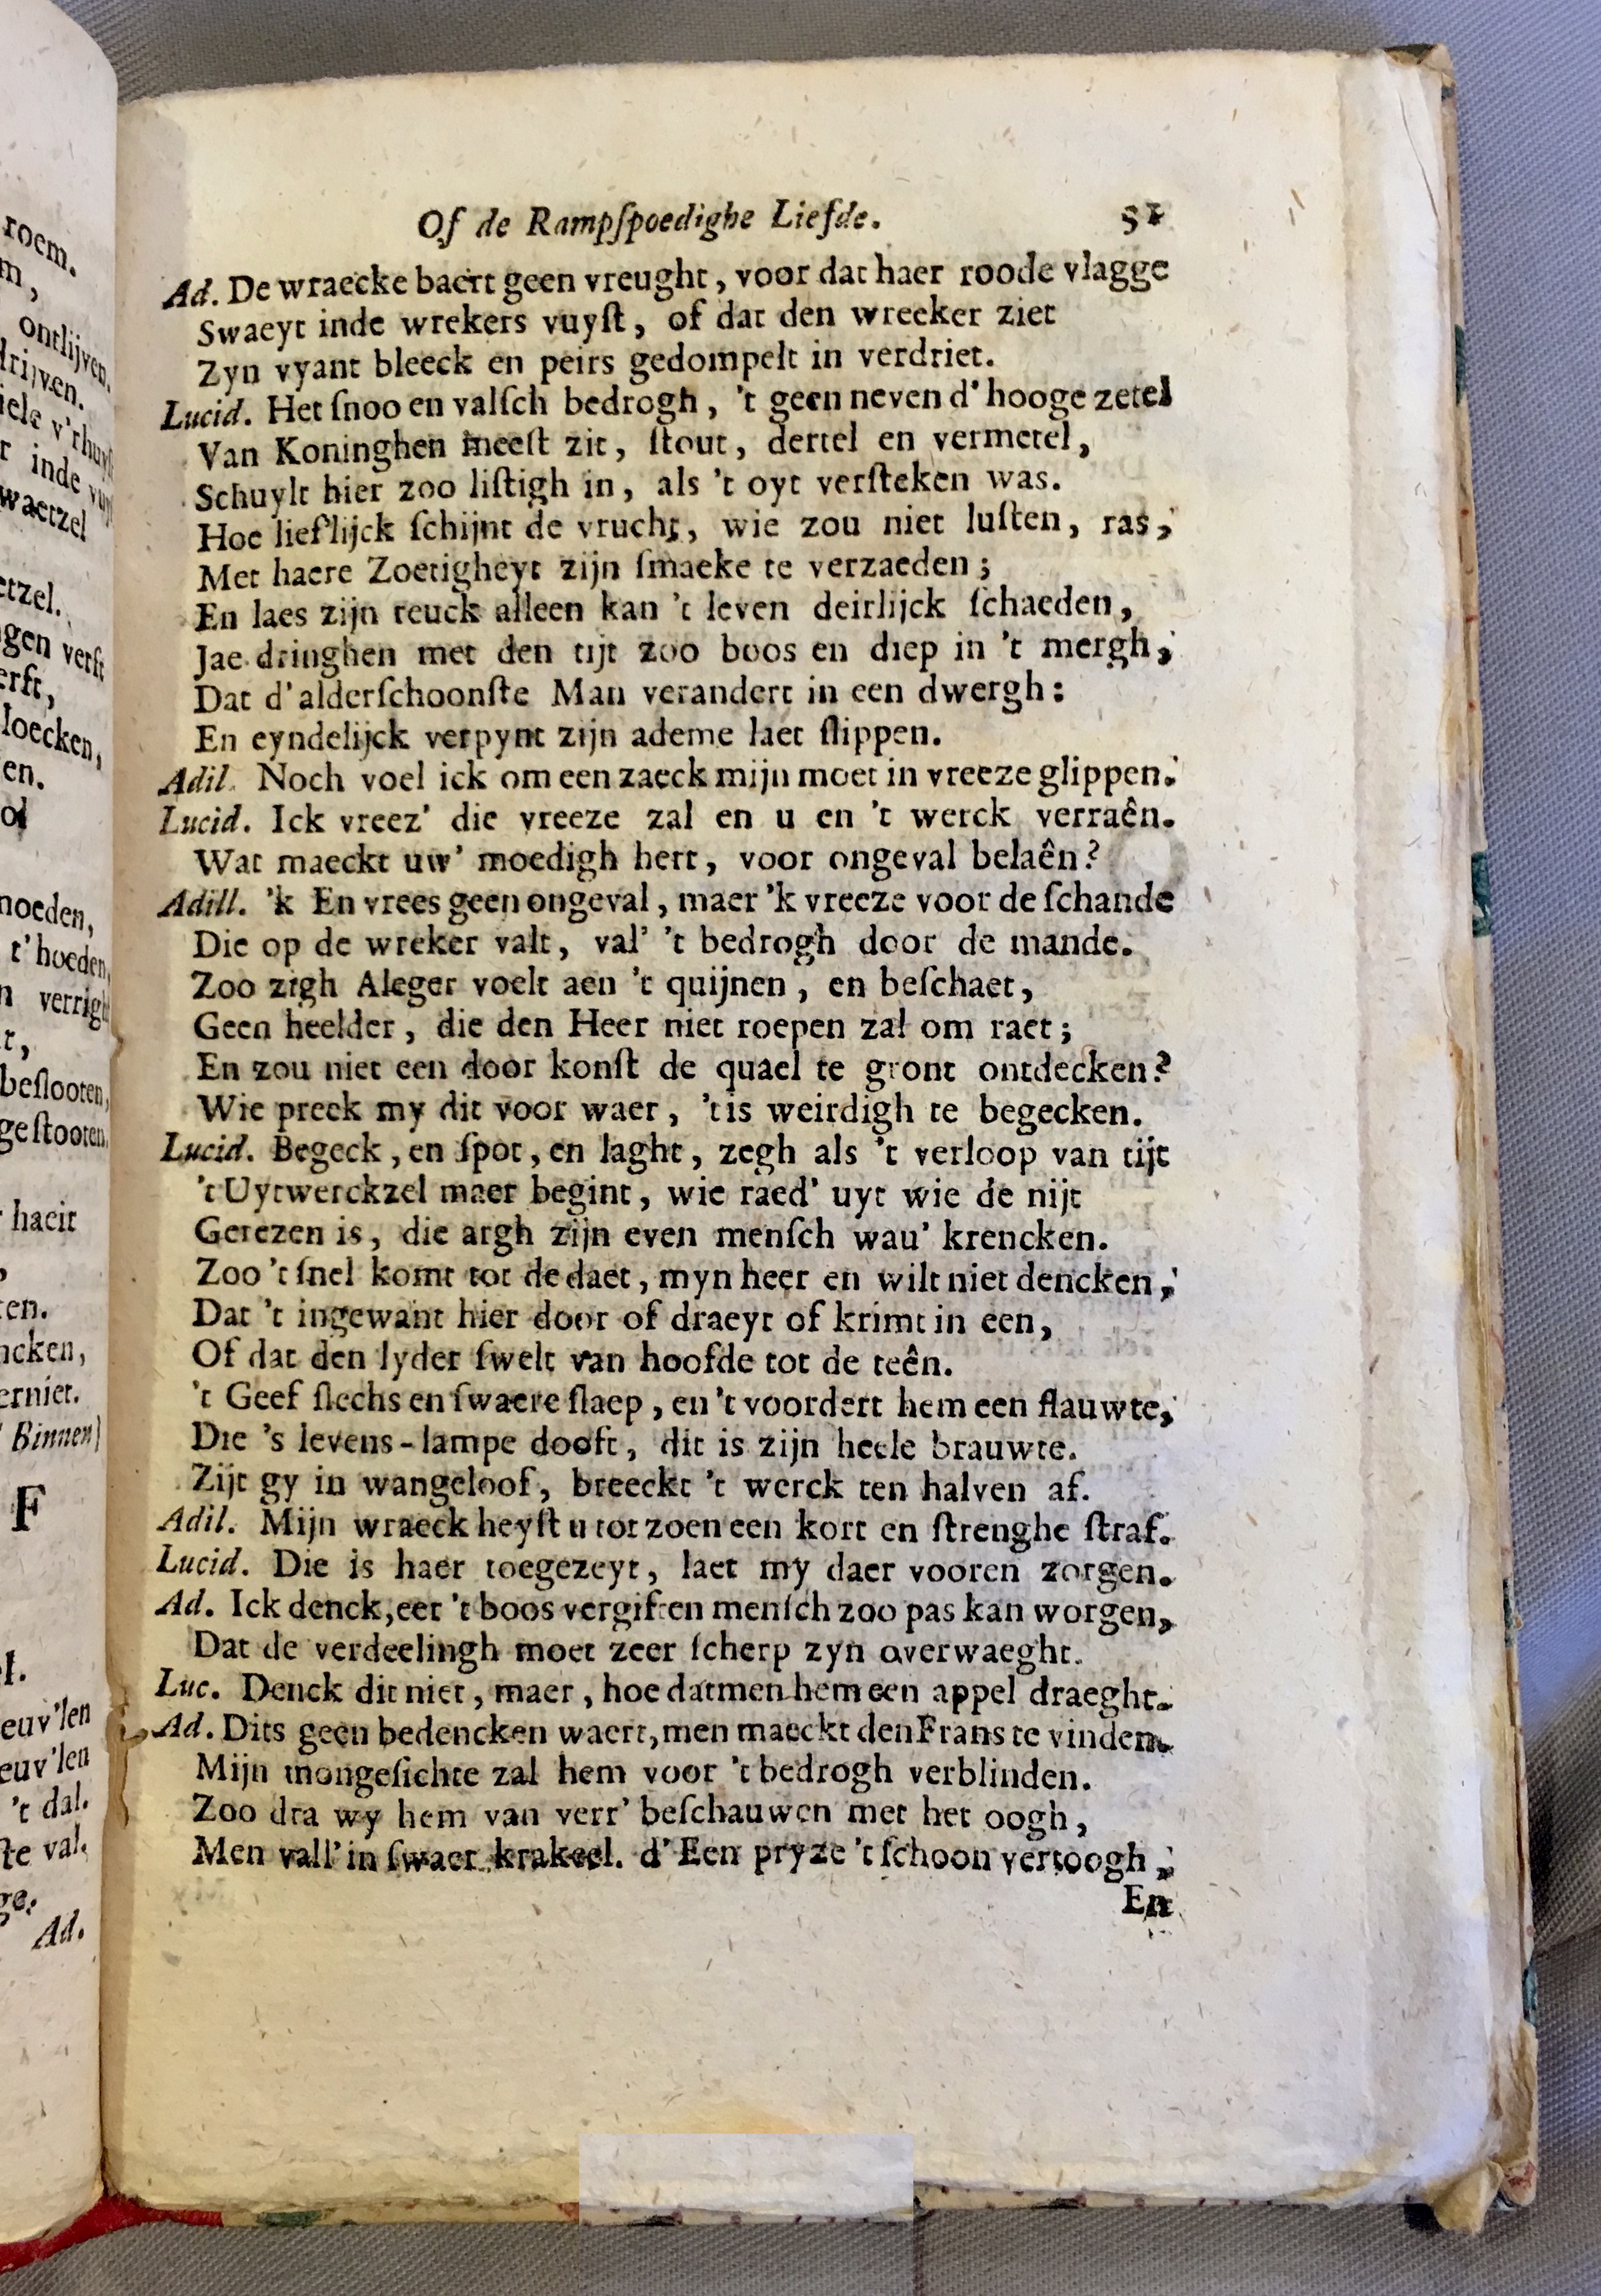 Of de Rampſpoedighe Liefde. 51
Ad. De wraecke baert geen vreught, voor dat haer roode vlagge
Swaeyt inde wrekers vuyſt, of dat den wreeker ziet
Zyn vyant bleeck en peirs gedompelt in verdriet.
Lucid. Het ſnoo en valſch bedrogh, 't geen neven d' hooge zetel
Van Koninghen meeſt zit, ſtout, dertel en vermetel,
Schuylt hier zoo liſtigh in, als 't oyt verſteken was.
Hoe lieflijck ſchijnt de vrucht, wie zou niet luſten, ras,
Met haere Zoetigheyt zijn ſmaeke te verzaeden;
En laes zijn reuck alleen kan 't leven deirlijck ſchaeden,
Jae dringhen met den tijt zoo boos en diep in 't mergh,
Dat d'alderſchoonſte Man verandert in een dwergh:
En eyndelijck verpynt zijn ademe laet ſlippen.
Adil. Noch voel ick om een zaeck mijn moet in vreeze glippen.
Lucid. Ick vreez' die vreeze zal en u en 't werck verraên.
Wat maeckt uw' moedigh hert, voor ongeval belaên?
Adill. 'k En vrees geen ongeval, maer 'k vreeze voor de ſchande
Die op de wreker valt, val' 't bedrogh door de mande.
Zoo zigh Aleger voelt aen 't quijnen, en beſchaet,
Geen heelder, die den Heer niet roepen zal om raet;
En zou niet een door konſt de quael te gront ontdecken?
Wie preek my dit voor waer, 't is weirdigh te begecken.
Lucid. Begeck, en ſpot, en laght, zegh als 't verloop van tijt
't Uytwerckzel maer begint, wie raed' uyt wie de nijt
Gerezen is, die argh zijn even menſch wau' krencken.
Zoo 't ſnel komt tot de daet, myn heer en wilt niet dencken,
Dat 't ingewant hier door of draeyt of krimt in een,
Of dat den lyder ſwelt van hoofde tot de teên.
't Geef ſlechs en ſwaere ſlaep, en 't voordert hem een flauwte,
Die 's levens-lampe dooft, dit is zijn heele brauwte.
Zijt gy in wangeloof, breeckt 't werck ten halven af.
Adil. Mijn wraeck heyſt u tot zoen een kort en ſtrenghe ſtraf.
Lucid. Die is haer toegezeyt, laet my daer vooren zorgen.
Ad. Ick denck, eer 't boos vergift en menſch zoo pas kan worgen,
Dat de verdeelingh moet zeer ſcherp zyn overwaeght.
Luc. Denck dit niet, maer, hoe datmen hem een appel draeght.
Ad. Dits geen bedencken waert, men maeckt den Frans te vinden.
Mijn mongeſichte zal hem voor 't bedrogh verblinden.
Zoo dra wy hem van verr' beſchauwen met het oogh,
Men vall' in ſwaer krakeel. d' Een pryze 't ſchoon vertoogh,
En
roem.
ontlijven.
drijven.
inde
waetzel
etzel.
gen verſt
erft,
loecken,
en.
noeden,
t'hoeden,
verrigh
beſlooten,
geſtooten.
haeir
ncken,
erniet.
Binnen
F
euv'len
euv'len
't dal.
te val.
ge.
Ad.